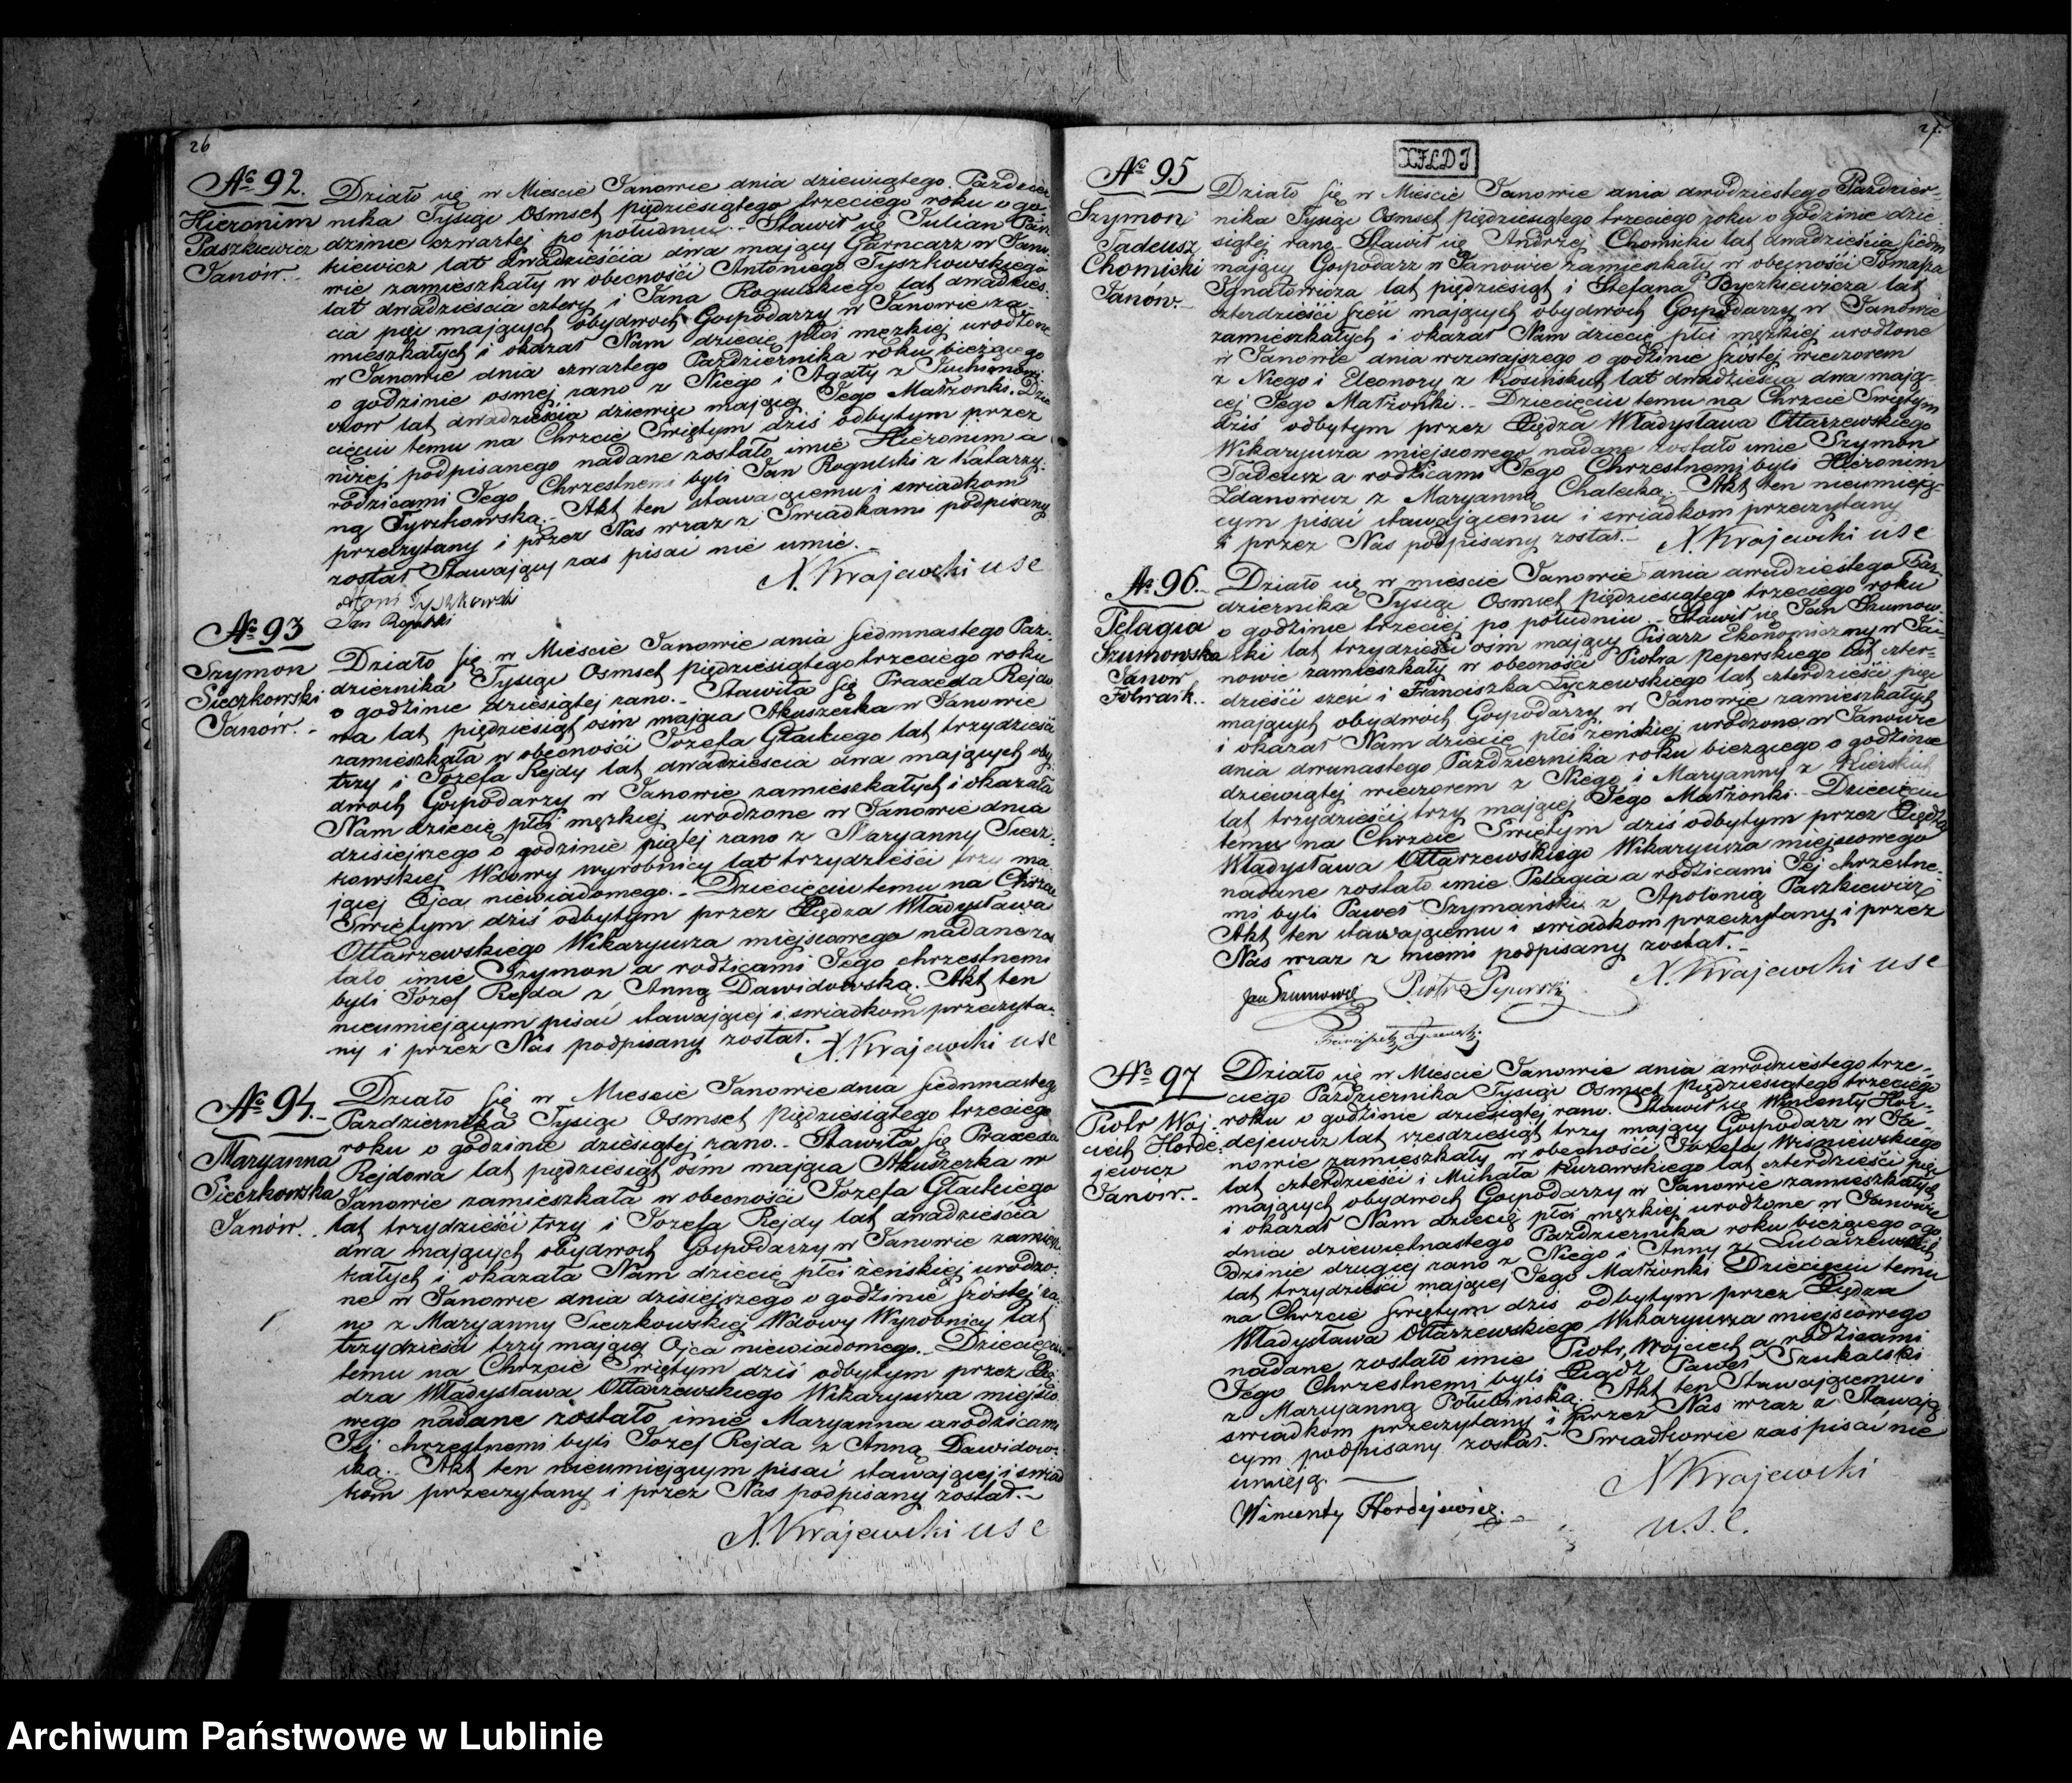 26
№ 92.
Hieronim
Paszkiewicz
Janów.
Działo się w Mieście Janowie dnia dziewiątego Paździer
nika Tysiąc Osmset piędziesiątego trzeciego roku o go
dzinie czwartej po południu. Stawił się Julian Pasz
kiewicz lat dwadzieścia dwa mający Garncarz w Jano
wie zamieszkały w obecności Antoniego Tyszkowskiego
lat dwadzieścia cztery i Jana Rogulskiego lat dwadzieś
cia pięć mających obydwóch Gospodarzy w Janowie za
mieszkałych i okazał Nam dziecię płci męzkiej urodzone
w Janowie dnia czwartego Października roku bieżącego
o godzinie osmej rano z Niego i Agaty z
lat dwadzieścia dziewięć mającej Jego Małżonki. Dzie
cięciu temu na Chrzcie Swiętym dziś odbytym przez
niżej podpisanego nadane zostało imie Hieronim a
rodzicami Jego Chrzestnemi byli Jan Rogulski z Katarzy
ną Tyszkowską. Akt ten stawaiącemu i swiadkom
przeczytany i przez Nas wraz z Swiadkami podpisany
został Stawający zaś pisać nie umie.
N. Krajewski U S C
Antoni Tyszkowski
Jan Rogulski
№ 93
Szymon
Sieczkowski
Janów.
Działo się w Mieście Janowie dnia siedmnastego Paź
dziernika Tysiąc Osmset piędziesiątego trzeciego roku
o godzinie dziesiątej rano. Stawiła się Praxeda Rejdo
wa lat piędziesiąt ośm mająca Akuszerka w Janowie
zamieszkała w obecności Józefa Głackiego lat trzydzieści
trzy i Józefa Rejdy lat dwadzieścia dwa mających oby
dwóch Gospodarzy w Janowie zamieszkałych i okazała
Nam dziecię płci męzkiej urodzone w Janowie dnia
dzisiejszego o godzinie piątej rano z Maryanny Siecz
kowskiej Wdowy wyrobnicy lat trzydzieści trzy ma
jącej Ojca niewiadomego. Dziecięciu temu na Chrzcie
Swiętym dziś odbytym przez Xiędza Władysława
Ołtarzewskiego Wikaryusza miejscowego nadane zos
tało imie Szymon a rodzicami Jego chrzestnemi
byli Józef Rejda z Anną Dawidowską. Akt ten
nieumiejącym pisać stawającej i swiadkom przeczyta
ny i przez Nas podpisany został. N. Krajewski U S C
№ 94.
Maryanna
Sieczkowska
Janów.
Działo się w Mieście Janowie dnia siedmnastego
Października Tysiąc Osmset piędziesiątego trzeciego
roku o godzinie dziesiątej rano. Stawiła się Praxeda
Rejdowa lat piędziesiąt ośm mająca Akuszerka w
Janowie zamieszkała w obecności Józefa Głackiego
lat trzydzieści trzy i Józefa Rejdy lat dwadzieścia
dwa mających obydwóch Gospodarzy w Janowie zamiesz
kałych i okazała Nam dziecię płci żeńskiej urodzo
ne w Janowie dnia dzisiejszego o godzinie szóstej ra
no z Maryanny Sieczkowskiej Wdowy Wyrobnicy lat
trzydzieści trzy mającej Ojca niewiadomego. Dziecięciu
temu na Chrzcie Swiętym dziś odbytym przez Xię
dza Władysława Ołtarzewskiego Wikaryusza miejsco
wego nadane zostało imie Maryanna a rodzicami
Jej chrzestnemi byli Józef Rejda z Anną Dawidow
ską. Akt ten nieumiejącym pisać stawającej i świad
kom przeczytany i przez Nas podpisany został.
N. Krajewski U S C
27.
XFLDJ
№ 95
Szymon
Tadeusz
Chomicki
Janów.
Działo się w Mieście Janowie dnia dwódziestego Paździer
nika Tysiąc Osmset piędziesiątego trzeciego roku o godzinie dzie
siątej rano. Stawił się Andrzej Chomicki lat dwadzieścia siedm
mający Gospodarz w Janowie zamieszkały w obecności Tomasza
Ignatowicza lat piędziesiąt i Stefana Byczkiewicza lat
czterdzieści sześć mających obydwóch Gospodarzy w Janowie
zamieszkałych i okazał Nam dziecię płci męzkiej urodzone
w Janowie dnia wczorajszego o godzinie szóstej wieczorem
z Niego i Eleonory z Kosińskich lat dwadzieścia dwa mają
cej Jego Małżonki. Dziecięciu temu na Chrzcie Swiętym
dziś odbytym przez Xiędza Władysława Ołtarzewskiego
Wikaryusza miejscowego nadane zostało imie Szymon
Tadeusz a rodzicami Jego Chrzestnemi byli Hieronim
Zdanowicz z Maryanną Chalecką. Akt ten nieumieją
cym pisać stawającemu i swiadkom przeczytany
i przez Nas podpisany został. N. Krajewski U S C
№ 96.
Pelagia
Szumowska
Janow
Folwark.
Działo się w mieście Janowie dnia dwudziestego Paź
dziernika Tysiąc Osmset piędziesiątego trzeciego roku
o godzinie trzeciej po południu. Stawił się Jan Szumow
ski lat trzydzieści ośm mający Pisarz Ekonomiczny w Ja
nowie zamieszkały w obecności Piotra Peperskiego lat czter
dzieści sześć i Franciszka Łyczewskiego lat czterdzieści pięć
mających obydwóch Gospodarzy w Janowie zamieszkałych
i okazał Nam dziecię płci żeńskiej urodzone w Janowie
dnia dwunastego Października roku bieżącego o godzinie
dziewiątej wieczorem z Niego i Maryanny z Kierskich
lat trzydzieści trzy mającej Jego Małżonki. Dziecięciu
temu na Chrzcie Swiętym dziś odbytym przez Xiędza
Władysława Ołtarzewskiego Wikaryusza miejscowego
nadane zostało imie Pelagia a rodzicami Jej chrzestne
mi byli Paweł Szymański z Apolonią Paszkiewicz
Akt ten stawającemu i swiadkom przeczytany i przez
Nas wraz z niemi podpisany został.
N. Krajewski U S C
Jan Szumowski Piotr Peperski
Franciszek Łyczewski
№ 97
Piotr Woj
ciech Horde
jewicz
Janów.
Działo się w Mieście Janowie dnia dwódziestego trze
ciego Października Tysiąc Osmset piędziesiątego trzeciego
roku o godzinie dziesiątej rano. Stawił się Wincenty Hor
dejewicz lat szesdziesiąt trzy mający Gospodarz w Ja
nowie zamieszkały w obecności Józefa Wiszniewskiego
lat czterdzieści i Michała Kurowskiego lat czterdzieści pięć
mających obydwóch Gospodarzy w Janowie zamieszkałych
i okazał Nam dziecię płci męzkiej urodzone w Janowie
dnia dziewiętnastego Października roku bieżącego o go
dzinie drugiej rano z Niego i Anny z
lat trzydzieści mającej Jego Małżonki Dziecięciu temu
na Chrzcie swiętym dziś odbytym przez Xiędza
Władysława Ołtarzewskiego Wikaryusza miejscowego
nadane zostało imie Piotr, Wojciech a rodzicami
Jego Chrzestnemi byli Xiądz Paweł Szukalski
z Maryanną Połubińską. Akt ten Stawającemu i
swiadkom przeczytany i przez Nas wraz z Stawają
cym podpisany został. Swiadkowie zaś pisać nie
umieją.
N Krajewski
U.S.C.
Wincenty Hordejewicz.
Archiwum Państwowe w Lublinie